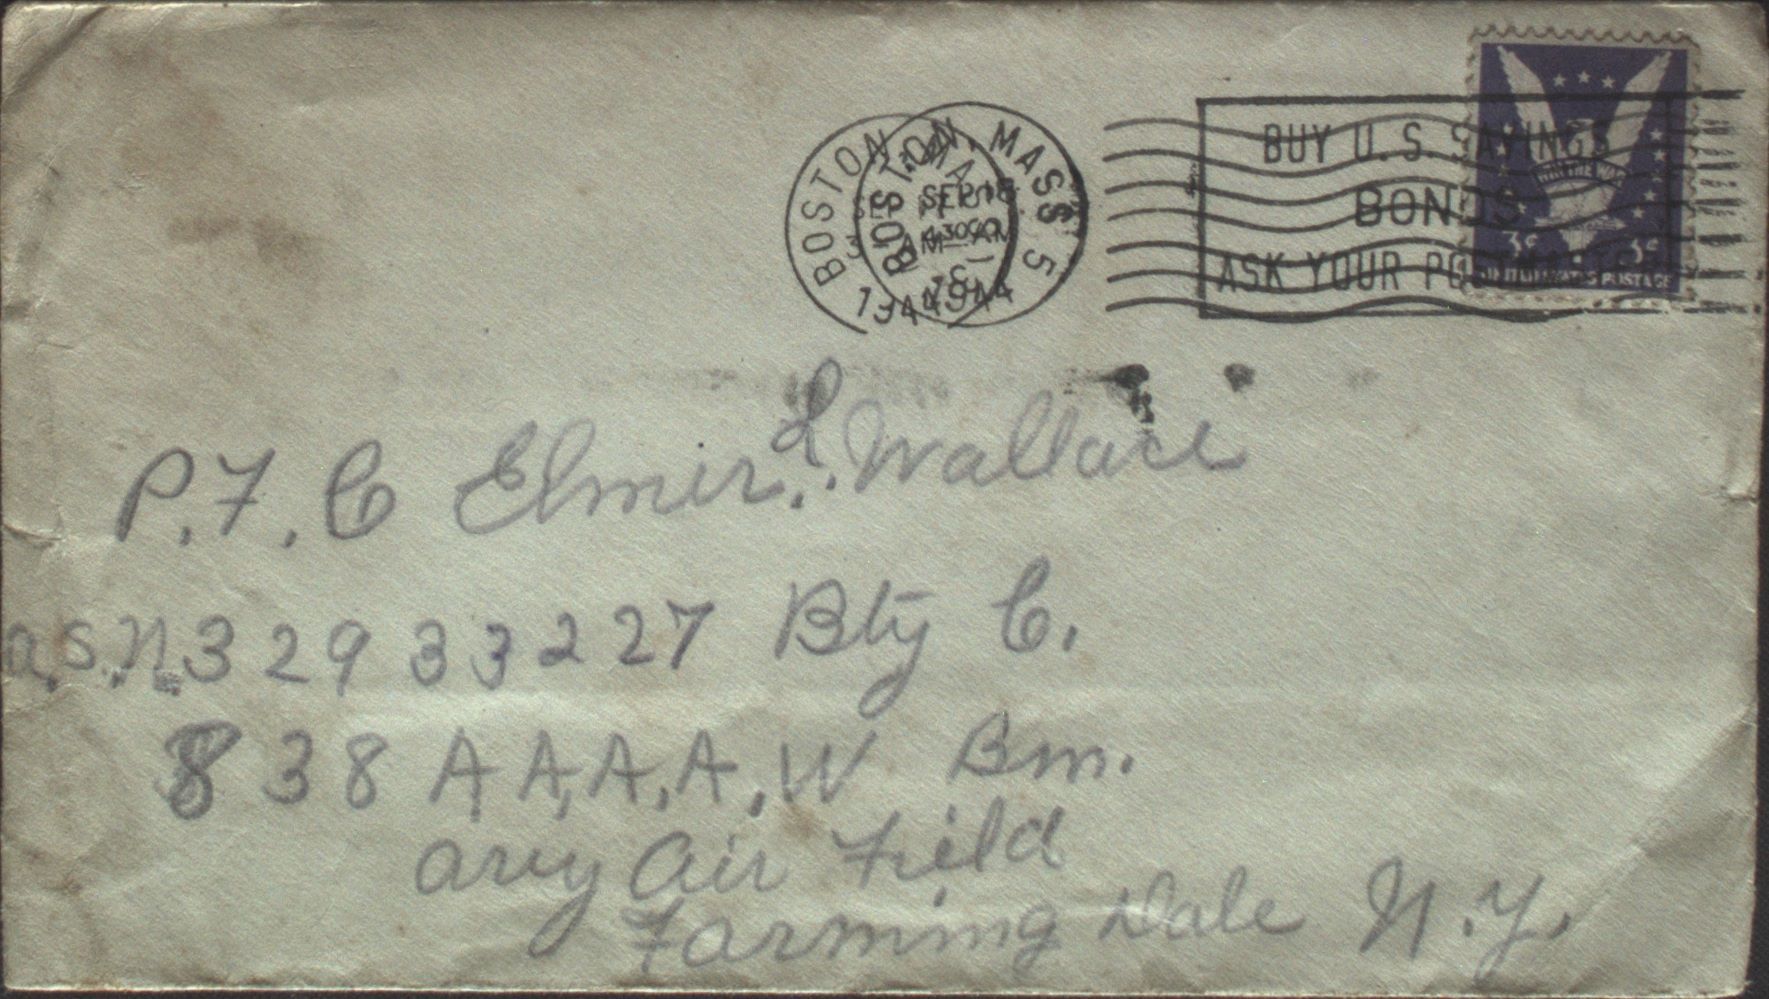 BOSTON, MASS 5
SEP 18
AM
1944
BUY U.S. SAVINGS
BONDS
ASK YOUR POSTMASTER
WIN THE WAR
3¢ 3¢
UNITED STATES POSTAGE
P.F.C Elmer L. Wallace
a.S.N. 32933227 Bty C.
838 A A.A.A.W Bm.
ary Air Field
Farming Dale N.Y.